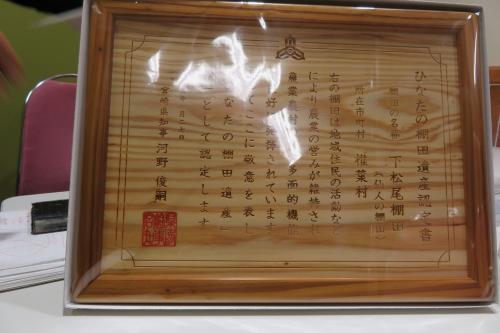 ひなたの棚田遺産認定書
棚田の名称 下松尾棚田
(仙人の棚田)
所在市町村 椎葉村
右の棚田は地域住民の活動など
により農業の営みが維持され
農業農村 多面的機能
好 発揮されています
ここに敬意を表し
なたの棚田遺産
一として認定します
年 月 七日
宮崎県知事 河野俊嗣